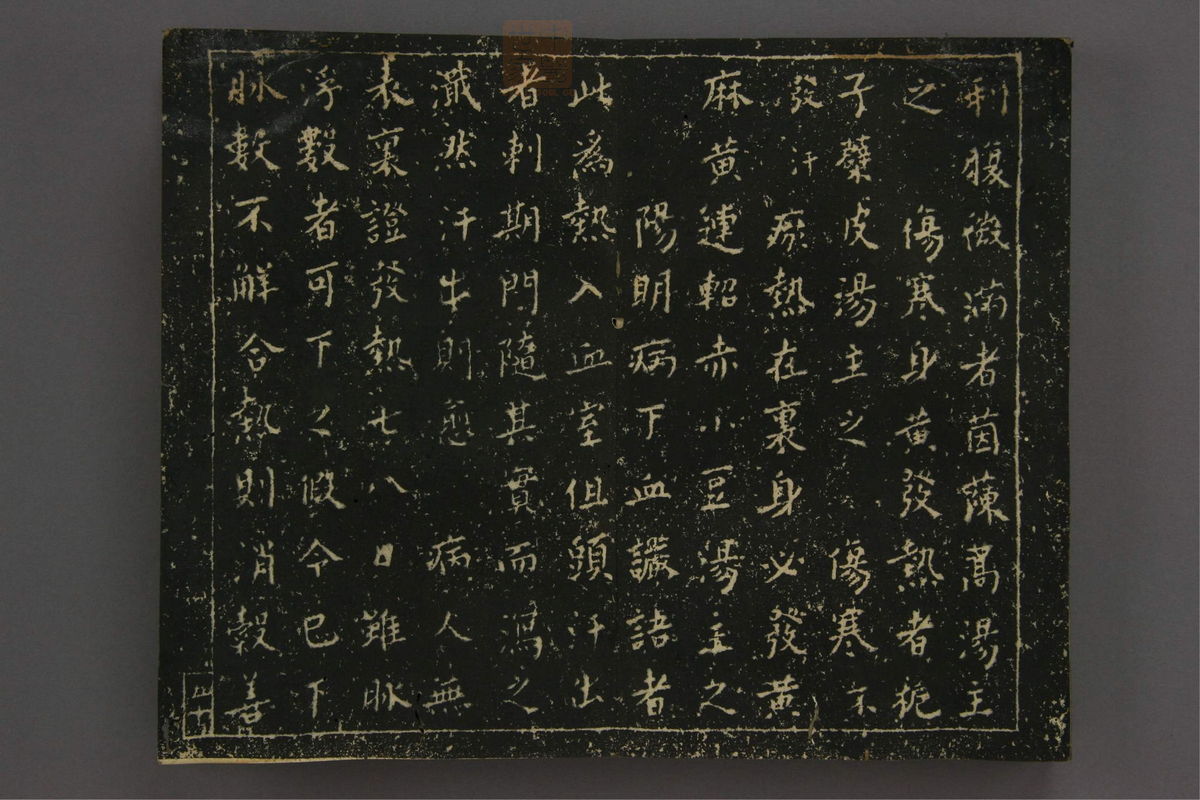 利腹微滿者茵蔯蒿湯主
之　傷寒身黃發熱者梔
子蘗皮湯主之　傷寒不
發汗　瘀熱在裏身必發黃
麻黃連軺赤小豆湯主之
陽明病下血讝語者
此為熱入血室但頭汗出
者刺期門隨其實而瀉之
濈然汗出則愈　病人無
表裏證發熱七八日雖脉
浮數者可下之假令已下
脉數不解合熱則消穀善
四十